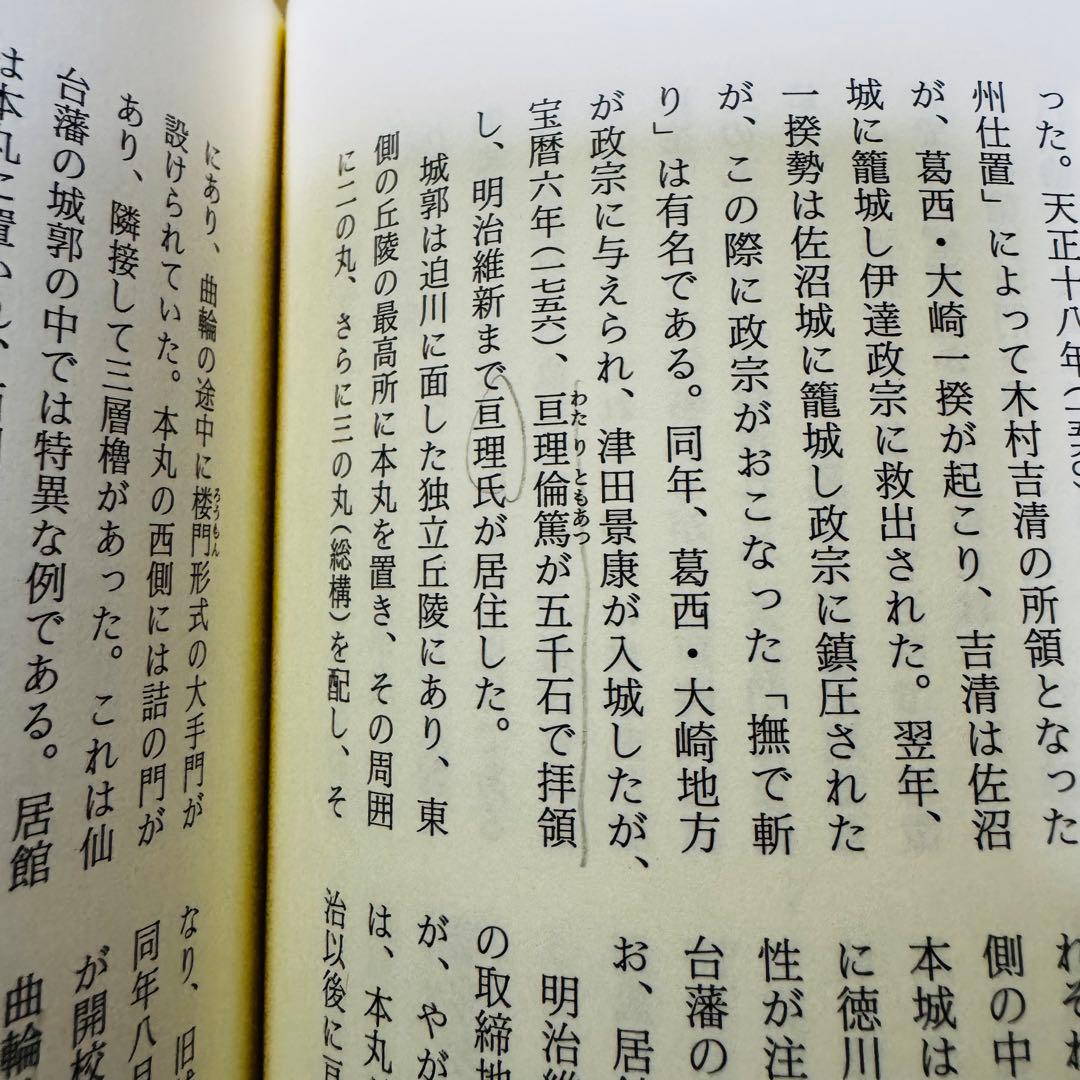 った。天正十八年(一五九〇)
州仕置」によって木村吉清の所領となった
が、葛西・大崎一揆が起こり、吉清は佐沼
城に籠城し伊達政宗に救出された。翌年、
一揆勢は佐沼城に籠城し政宗に鎮圧された
が、この際に政宗がおこなった「撫で斬
り」は有名である。同年、葛西・大崎地方
が政宗に与えられ、津田景康が入城したが、
わたりともあつ
宝暦六年(一七五六)、亘理倫篤が五千石で拝領
し、明治維新まで亘理氏が居住した。
城郭は迫川に面した独立丘陵にあり、東
側の丘陵の最高所に本丸を置き、その周囲
に二の丸、さらに三の丸(総構)を配し、そ
れそれ
側の中
本城は
に徳川
性が注
台藩の
お、居
明治維
の取締地
が、やが
は、本丸
治以後に
ろうもん
にあり、曲輪の途中に楼門形式の大手門が
設けられていた。本丸の西側には詰の門が
あり、隣接して三層櫓があった。これは仙
台藩の城郭の中では特異な例である。居館
は本丸に置かれ、
なり、旧
同年八月
が開校
曲輪